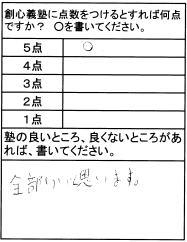 創心義塾に点数をつけるとすれば何点
ですか？ ○を書いてください。
5点 ○
4点
3点
2点
1点
塾の良いところ、良くないところがあ
れば、書いてください。
全部いい思います。